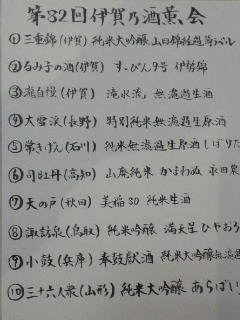 第32回伊賀乃酒薫会
①三重錦(伊賀) 純米大吟醸 山田錦 ラベル
②るみ子の酒(伊賀) すっぴん 9号 伊勢錦
③瀧自慢(伊賀) 滝水流 無濾過生酒
④大雪渓(長野) 特別純米無濾過生原酒
⑤常きげん(石川) 純米無濾過生原酒 しぼりた
⑥司牡丹(高知) 山廃純米 かまわぬ 永田農
⑦天の戸(秋田) 美稲80 純米生酒
⑧諏訪泉(鳥取) 純米吟醸 満天星 ひやおろ
⑨小鼓(兵庫) 奉鼓献酒 純米大吟醸無濾過
⑩三十六人衆(山形) 純米大吟醸 あらばし